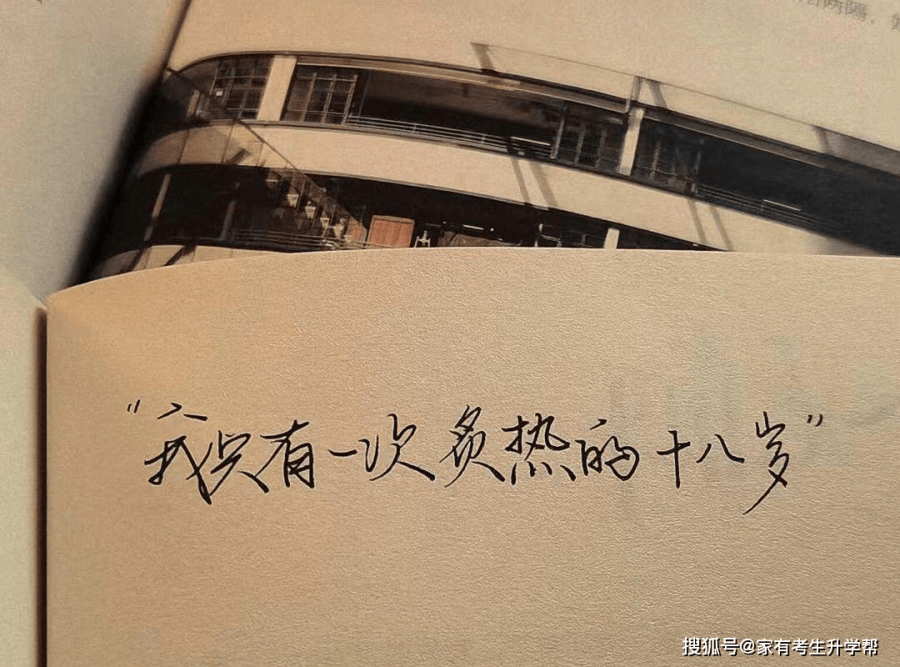 “我只有一次炙热的十八岁”
搜狐号@家有考生升学帮